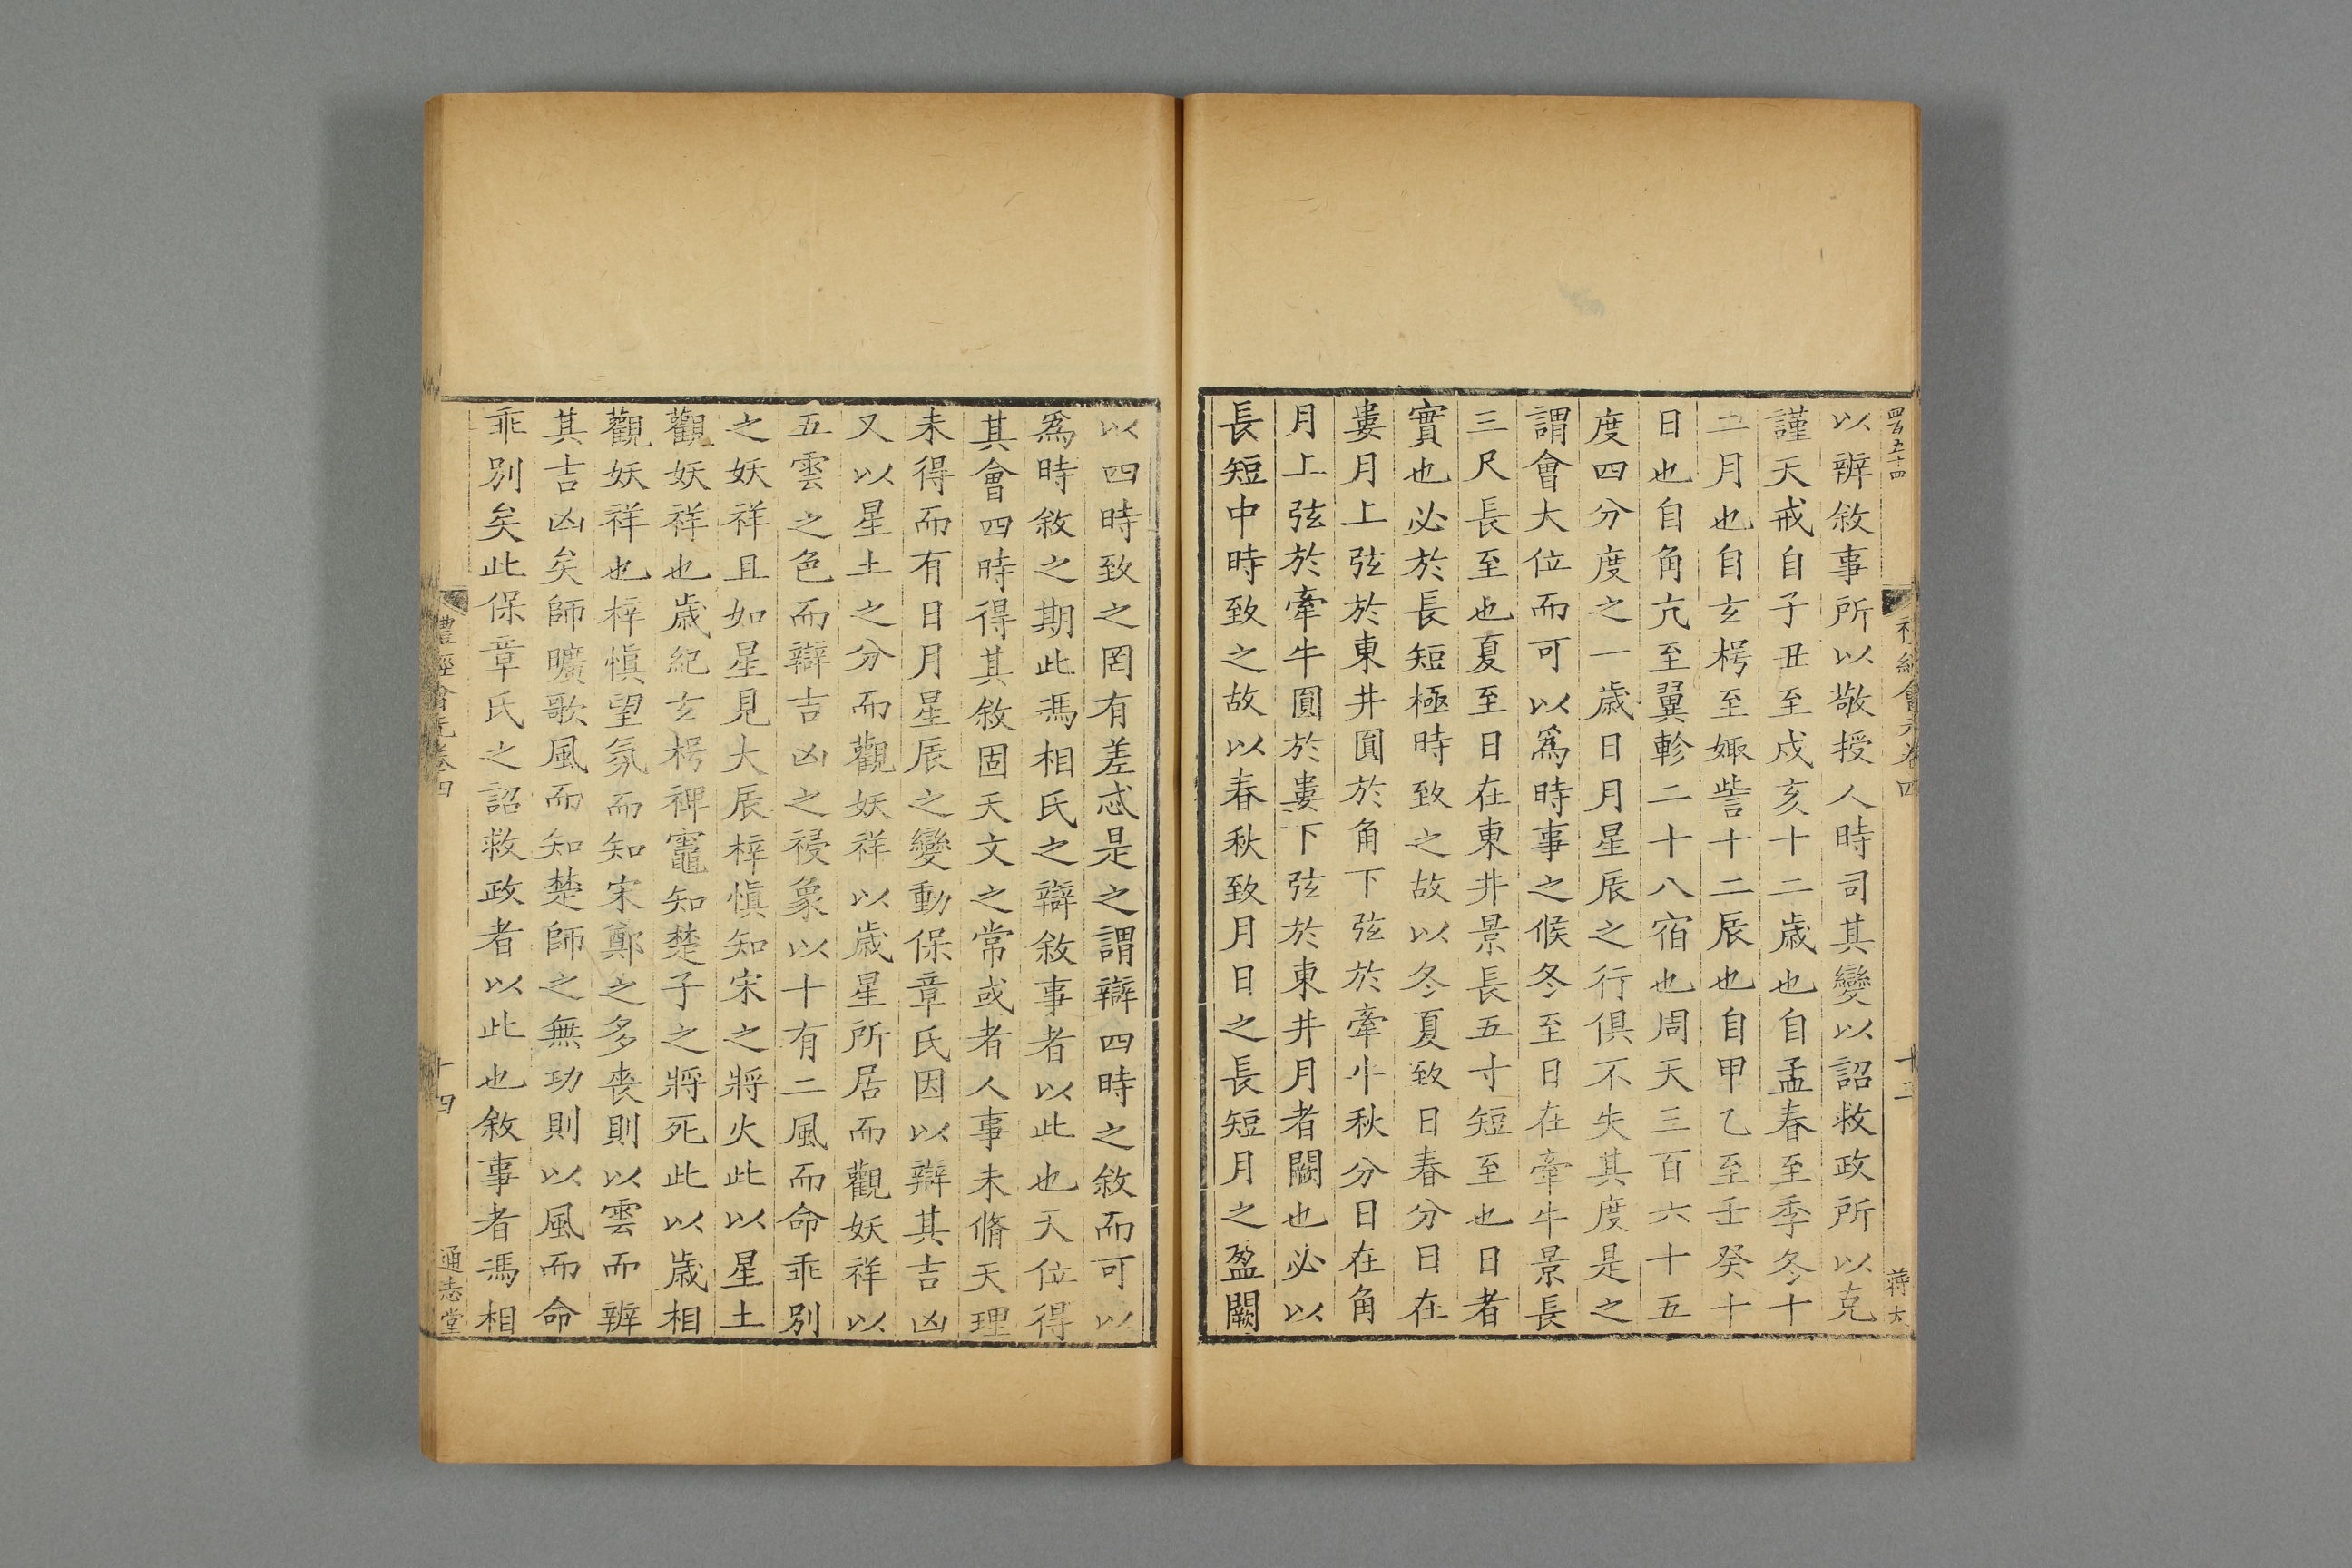 四百五十四
禮經會元卷四
十三
蔣太
以辨敘事所以敬授人時司其變以詔救政所以克
謹天戒自子丑至戍亥十二歲也自孟春至季冬十
二月也自玄枵至娵訾十二辰也自甲乙至壬癸十
日也自角亢至翼軫二十八宿也周天三百六十五
度四分度之一歲日月星辰之行俱不失其度是之
謂會大位而可以爲時事之候冬至日在牽牛景長
三尺長至也夏至日在東井景長五寸短至也日者
實也必於長短極時致之故以冬夏致日春分日在
婁月上弦於東井圓於角下弦於牽牛秋分日在角
月上弦於牽牛圓於婁下弦於東井月者闕也必以
長短中時致之故以春秋致月日之長短月之盈闕
以四時致之罔有差忒是之謂辯四時之敘而可以
爲時敘之期此馮相氏之辯敘事者以此也天位得
其會四時得其敘固天文之常或者人事未脩天理
未得而有日月星辰之變動保章氏因以辯其吉凶
又以星土之分而觀妖祥以歲星所居而觀妖祥以
五雲之色而辯吉凶之祲象以十有二風而命乖別
之妖祥且如星見大辰梓慎知宋之將火此以星土
觀妖祥也歲紀玄枵裨竈知楚子之將死此以歲相
觀妖祥也梓慎望氛而知宋鄭之多喪則以雲而辨
其吉凶矣師曠歌風而知楚師之無功則以風而命
乖別矣此保章氏之詔救政者以此也敘事者馮相
禮經會元卷四
十四
通志堂